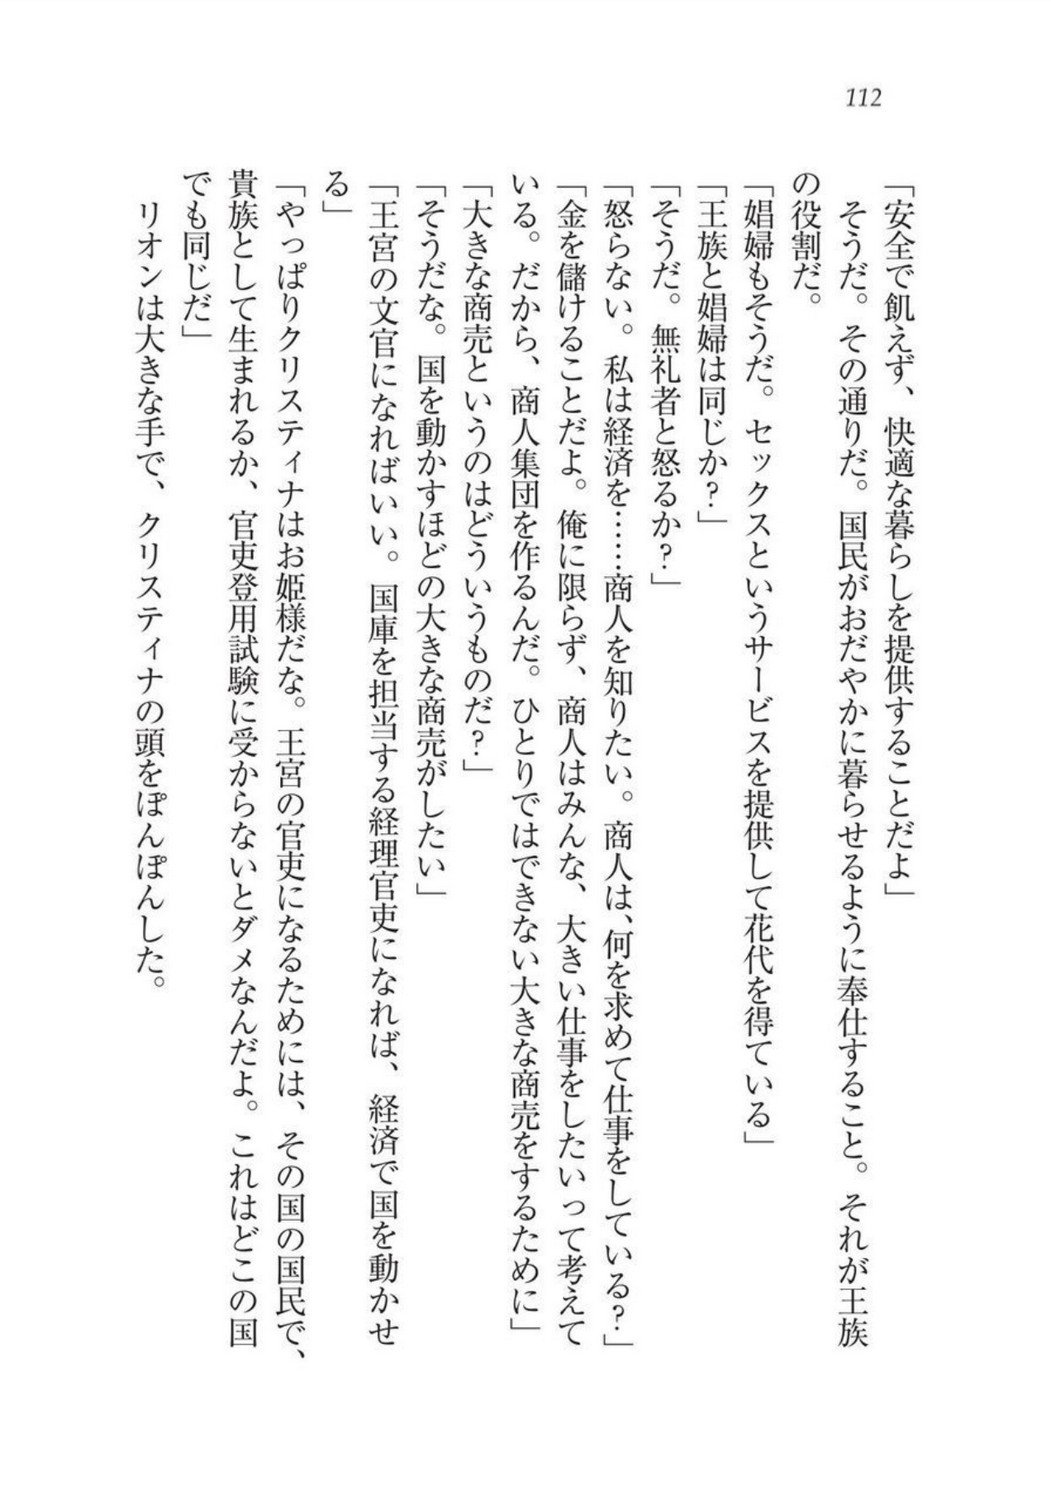 112
「安全で飢えず、快適な暮らしを提供することだよ」
そうだ。その通りだ。国民がおだやかに暮らせるように奉仕すること。それが王族
の役割だ。
「娼婦もそうだ。セックスというサービスを提供して花代を得ている」
「王族と娼婦は同じか？」
「そうだ。無礼者と怒るか？」
「怒らない。私は経済を……商人を知りたい。商人は、何を求めて仕事をしている？」
「金を儲けることだよ。俺に限らず、商人はみんな、大きい仕事をしたいって考えて
いる。だから、商人集団を作るんだ。ひとりではできない大きな商売をするために」
「大きな商売というのはどういうものだ？」
「そうだな。国を動かすほどの大きな商売がしたい」
「王宮の文官になればいい。国庫を担当する経理官吏になれば、経済で国を動かせ
る」
「やっぱりクリスティナはお姫様だな。王宮の官吏になるためには、その国の国民で、
貴族として生まれるか、官吏登用試験に受からないとダメなんだよ。これはどこの国
でも同じだ」
リオンは大きな手で、クリスティナの頭をぽんぽんした。